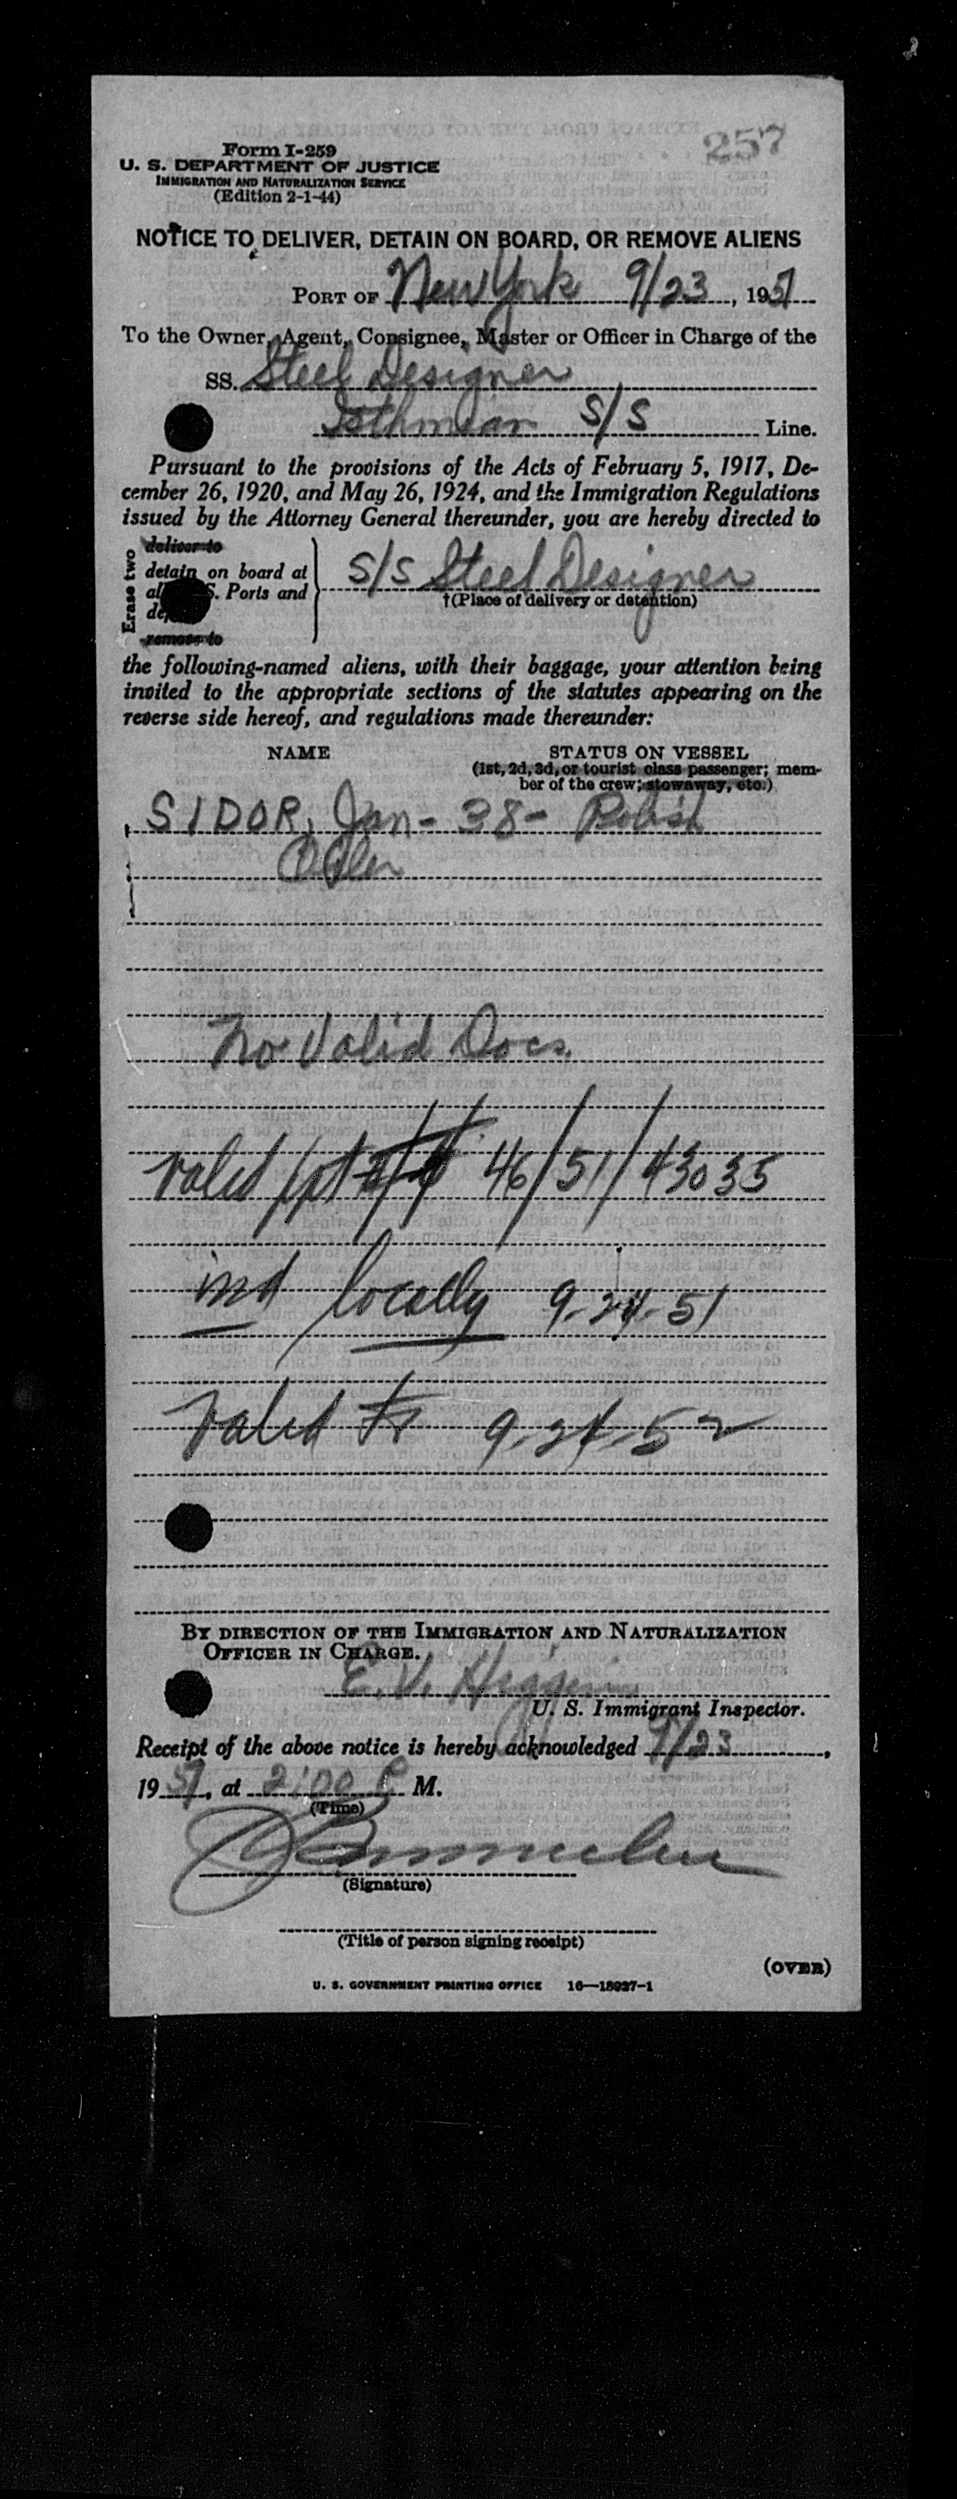 257
Form I-259
U. S. DEPARTMENT OF JUSTICE
IMMIGRATION AND NATURALIZATION SERVICE
(Edition 2-1-44)
NOTICE TO DELIVER, DETAIN ON BOARD, OR REMOVE ALIENS
PORT OF New York 9/23, 1951
To the Owner, Agent, Consignee, Master or Officer in Charge of the
SS. Steel Designer
Isthmian S/S Line.
Pursuant to the provisions of the Acts of February 5, 1917, De-
cember 26, 1920, and May 26, 1924, and the Immigration Regulations
issued by the Attorney General thereunder, you are hereby directed to
Erase two
deliver to
detain on board at
S. Ports and
remove to
S/S Steel Designer
†(Place of delivery or detention)
the following-named aliens, with their baggage, your attention being
invited to the appropriate sections of the statutes appearing on the
reverse side hereof, and regulations made thereunder:
NAME STATUS ON VESSEL
(1st, 2d, 3d, or tourist class passenger; mem-
ber of the crew; stowaway, etc.)
SIDOR, Jan - 38 - Polish
Oiler
No Valid Docs.
Valid ppt 46/51/43035
ind locally 9-24-51
Valid to 9-24-52
BY DIRECTION OF THE IMMIGRATION AND NATURALIZATION
OFFICER IN CHARGE.
E. V.
U. S. Immigrant Inspector.
Receipt of the above notice is hereby acknowledged 9/23,
1951, at 2:00 P M.
(Time)
(Signature)
(Title of person signing receipt)
(OVER)
U. S. GOVERNMENT PRINTING OFFICE 16—18927-1